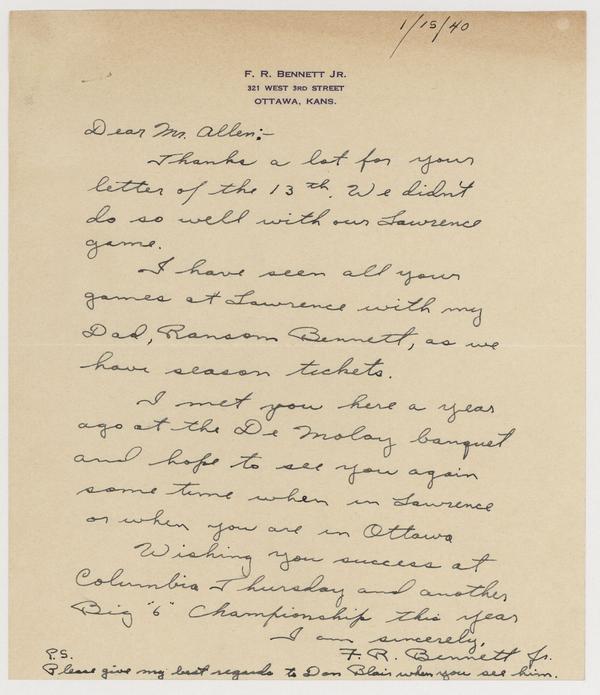 1/15/40
F. R. BENNETT JR.
321 WEST 3RD STREET
OTTAWA, KANS.
Dear Mr. Allen:-
Thanks a lot for your
letter of the 13th. We didn't
do so well with our Lawrence
game.
I have seen all your
games at Lawrence with my
Dad, Ransom Bennett, as we
have season tickets.
I met you here a year
ago at the De Molay banquet
and hope to see you again
some time when in Lawrence
or when you are in Ottawa
Wishing you success at
Columbia Thursday and another
Big "6" Championship this year
I am sincerely,
F. R. Bennett Jr.
P.S.
Please give my best regards to Don Blair when you see him.